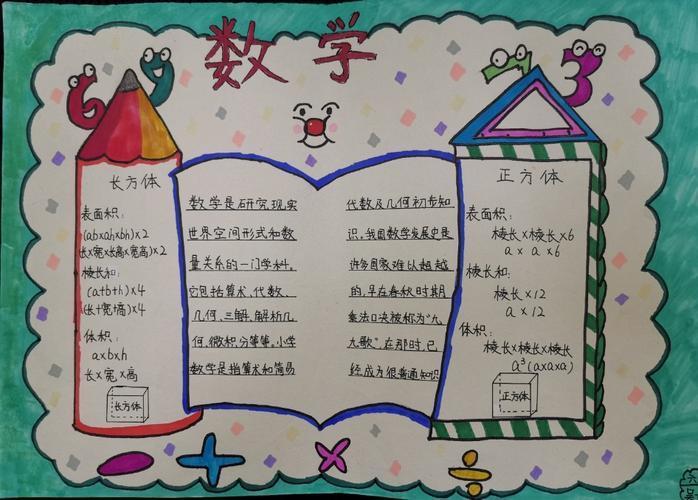 数学
6 9 7 3
长方体
表面积:
(ab×ah×bh)×2
长×宽×长高×宽高)×2
棱长和:
(a+b+h)×4
(长+宽+高)×4
体积:
a×b×h
长×宽×高
长方体
数学是研究现实
世界空间形式和数
量关系的一门学科,
它包括算术、代数、
几何、三解、解析几
何、微积分等等,小学
数学是指算术和简易
代数及几何初步知
识,我国数学发展史是
许多国家难以超越
的,早在春秋时其月
乘法口决被称为"九
九歌",在那时,已
经成为很普通知识
正方体
表面积:
棱长×棱长×6
a × a ×6
棱长和:
棱长×12
a × 12
体积:
棱长×棱长×棱长
a³(a×a×a)
正方体
- + × ÷